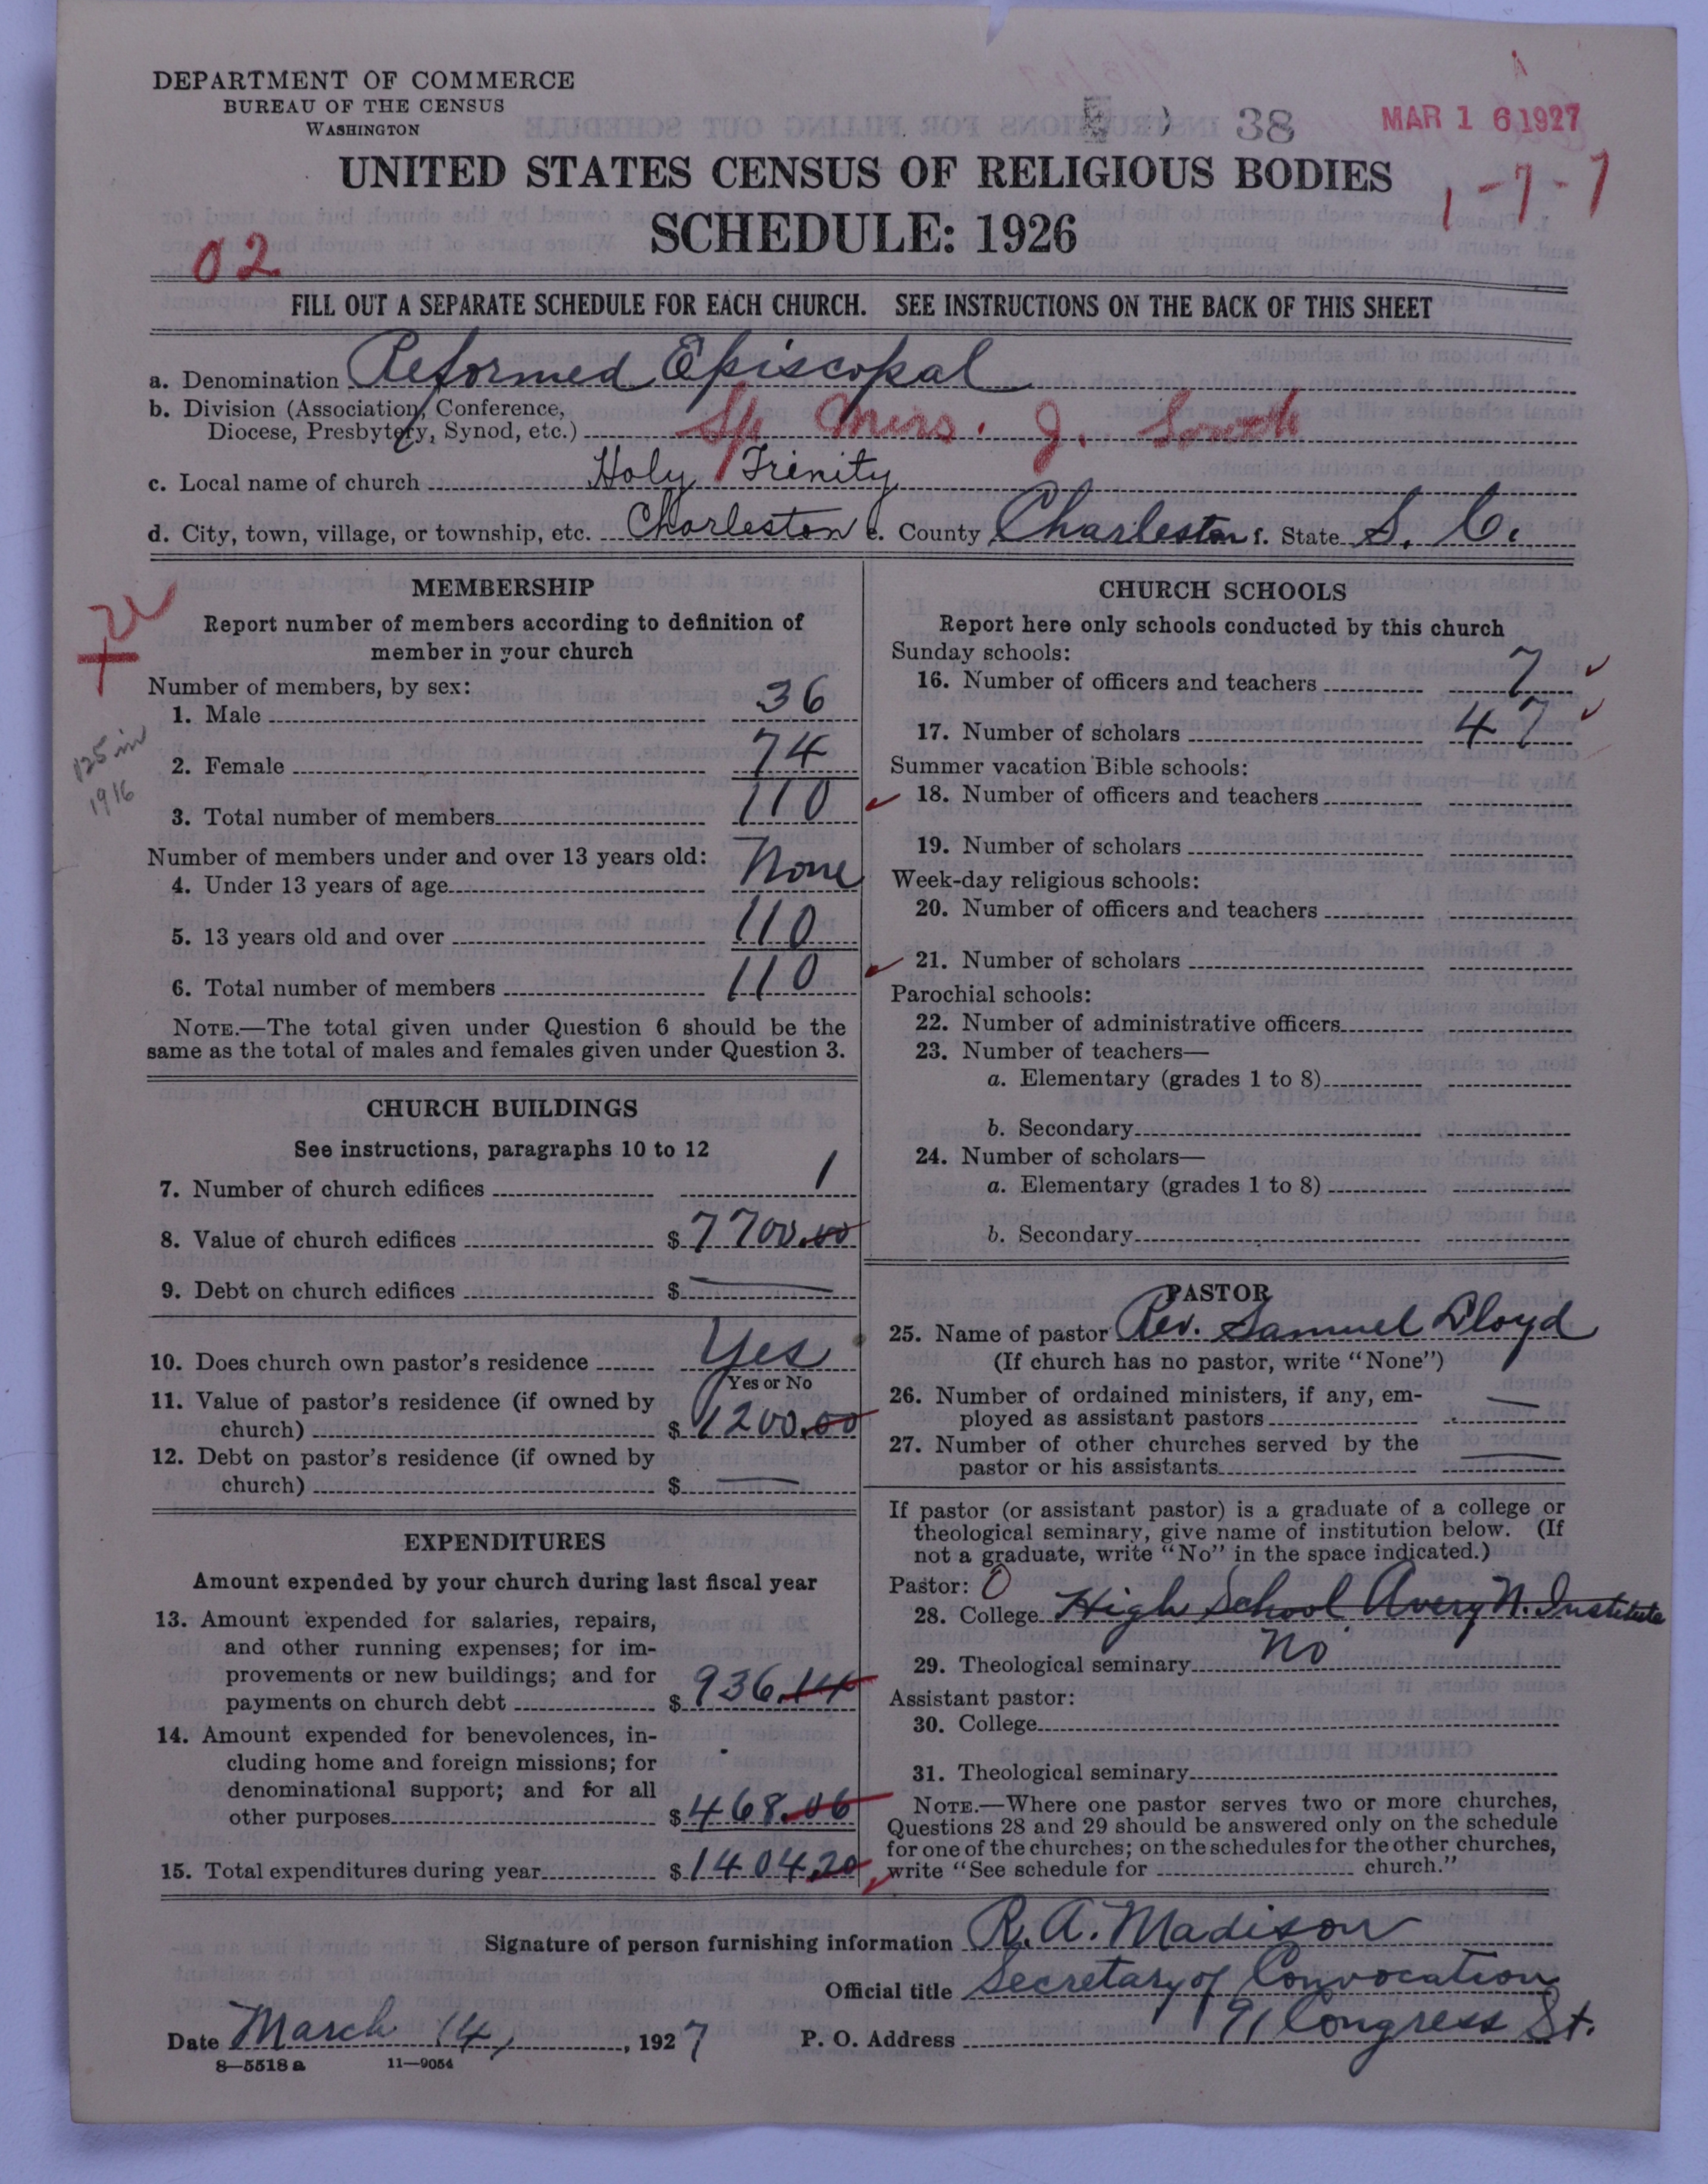 DEPARTMENT OF COMMERCE
BUREAU OF THE CENSUS
WASHINGTON
38
MAR 16 1927
UNITED STATES CENSUS OF RELIGIOUS BODIES
1-7-7
SCHEDULE: 1926
02
FILL OUT A SEPARATE SCHEDULE FOR EACH CHURCH. SEE INSTRUCTIONS ON THE BACK OF THIS SHEET
a. Denomination Reformed Episcopal
b. Division (Association, Conference,
Diocese, Presbytery, Synod, etc.) Sp. Miss. J. South
c. Local name of church Holy Trinity
d. City, town, village, or township, etc. Charleston e. County Charleston f. State S. C.
MEMBERSHIP
Report number of members according to definition of
member in your church
Number of members, by sex:
1. Male 36
125 in
1916
2. Female 74
3. Total number of members 110
Number of members under and over 13 years old:
4. Under 13 years of age None
5. 13 years old and over 110
6. Total number of members 110
NOTE.—The total given under Question 6 should be the
same as the total of males and females given under Question 3.
CHURCH BUILDINGS
See instructions, paragraphs 10 to 12
7. Number of church edifices 1
8. Value of church edifices $ 7700.00
9. Debt on church edifices $ —
10. Does church own pastor's residence Yes
Yes or No
11. Value of pastor's residence (if owned by
church) $ 1200.00
12. Debt on pastor's residence (if owned by
church) $ —
EXPENDITURES
Amount expended by your church during last fiscal year
13. Amount expended for salaries, repairs,
and other running expenses; for im-
provements or new buildings; and for
payments on church debt $ 936.14
14. Amount expended for benevolences, in-
cluding home and foreign missions; for
denominational support; and for all
other purposes $ 468.06
15. Total expenditures during year $ 1404.20
CHURCH SCHOOLS
Report here only schools conducted by this church
Sunday schools:
16. Number of officers and teachers 7
17. Number of scholars 47
Summer vacation Bible schools:
18. Number of officers and teachers
19. Number of scholars
Week-day religious schools:
20. Number of officers and teachers
21. Number of scholars
Parochial schools:
22. Number of administrative officers
23. Number of teachers—
a. Elementary (grades 1 to 8)
b. Secondary
24. Number of scholars—
a. Elementary (grades 1 to 8)
b. Secondary
PASTOR
25. Name of pastor Rev. Samuel Lloyd
(If church has no pastor, write "None")
26. Number of ordained ministers, if any, em-
ployed as assistant pastors —
27. Number of other churches served by the
pastor or his assistants —
If pastor (or assistant pastor) is a graduate of a college or
theological seminary, give name of institution below. (If
not a graduate, write "No" in the space indicated.)
Pastor: 0
28. College High School Avery N. Institute
29. Theological seminary No
Assistant pastor:
30. College
31. Theological seminary
NOTE.—Where one pastor serves two or more churches,
Questions 28 and 29 should be answered only on the schedule
for one of the churches; on the schedules for the other churches,
write "See schedule for church."
Signature of person furnishing information R. A. Madison
Official title Secretary of Convocation
Date March 14, 1927 P. O. Address 91 Congress St.
8—5518a 11—9054